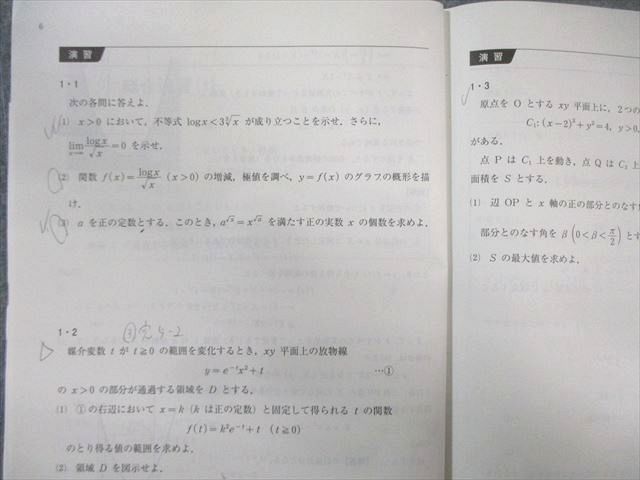 6
演習
1・1
次の各問に答えよ.
(1) x>0 において, 不等式 log x<3∛x が成り立つことを示せ. さらに,
lim x→∞ log x/√x =0 を示せ.
(2) 関数 f(x)= log x/√x (x>0) の増減, 極値を調べ, y=f(x) のグラフの概形を描
け.
(3) a を正の定数とする. このとき, a^√x=x^√a を満たす正の実数 x の個数を求めよ.
1・2
媒介変数 t が t≧0 の範囲を変化するとき, xy 平面上の放物線
y=e⁻ᵗx²+t …①
の x>0 の部分が通過する領域を D とする.
(1) ①の右辺において x=k (k は正の定数) と固定して得られる t の関数
f(t)=k²e⁻ᵗ+t (t≧0)
のとり得る値の範囲を求めよ.
(2) 領域 D を図示せよ.
演習
1・3
原点を O とする xy 平面上に, 2つの
C₁:(x-2)²+y²=4, y>0,
がある.
点 P は C₁ 上を動き, 点 Q は C₂ 上
面積を S とする.
(1) 辺 OP と x 軸の正の部分とのなす
部分とのなす角を β (0<β<π/2) とす
(2) S の最大値を求めよ.